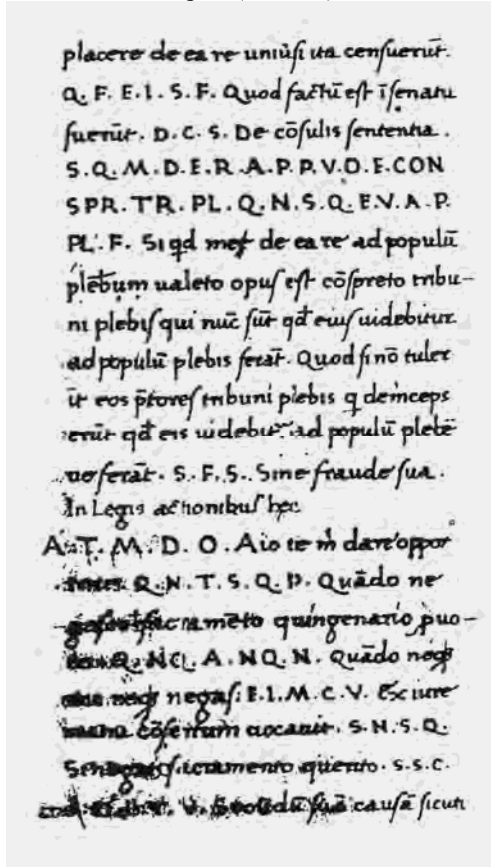 placere de ea re uniūſi ita cenſuerūt.
Q. F. E. I. S. F. Quod factū eſt ī ſenatu
fuerūt. D. C. S. De cōſulis ſententia.
S. Q. M. D. E. R. A. P. P. V. O. E. CON
SPR. TR. PL. Q. N. S. Q. E. V. A. P.
PL. F. Si qd de ea re ad populū
plebum ualeto opuſ eſt cōſpreto tribu-
ni plebiſ qui nūc ſūt qd eiuſ uidebitur
ad populū plebis ferāt. Quod ſi nō tuler
īt eos p̄toreſ tribuni plebis q deinceps
erūt qd eis uidebit ad populū plebē
ue ferāt. S. F. S. Sine fraude ſua.
In Legis actionibuſ hec
A. T. M. D. O. Aio te m̄ dare oppor
Q. N. T. S. Q. P. Quādo ne
mēto quingenario puo-
Q. NQ. A. NQ. N. Quādo neqȝ
neqȝ negaſ. E. I. M. C. V. Ex iure
cōſertum uocauit. S. N. S. Q.
ſacramento querito. S. S. C.
V. ſuā cauſā ſicuti